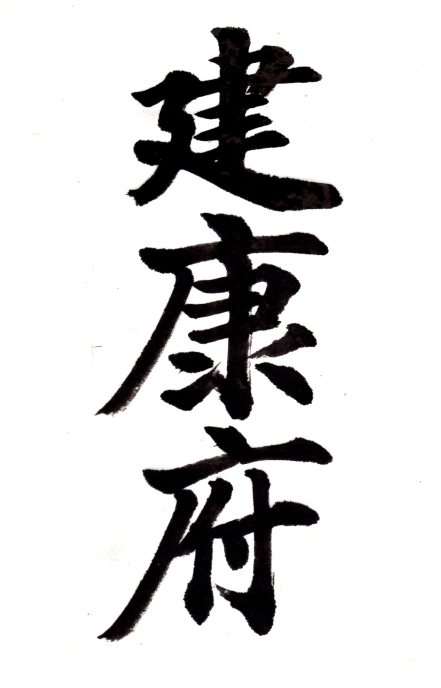 建康府